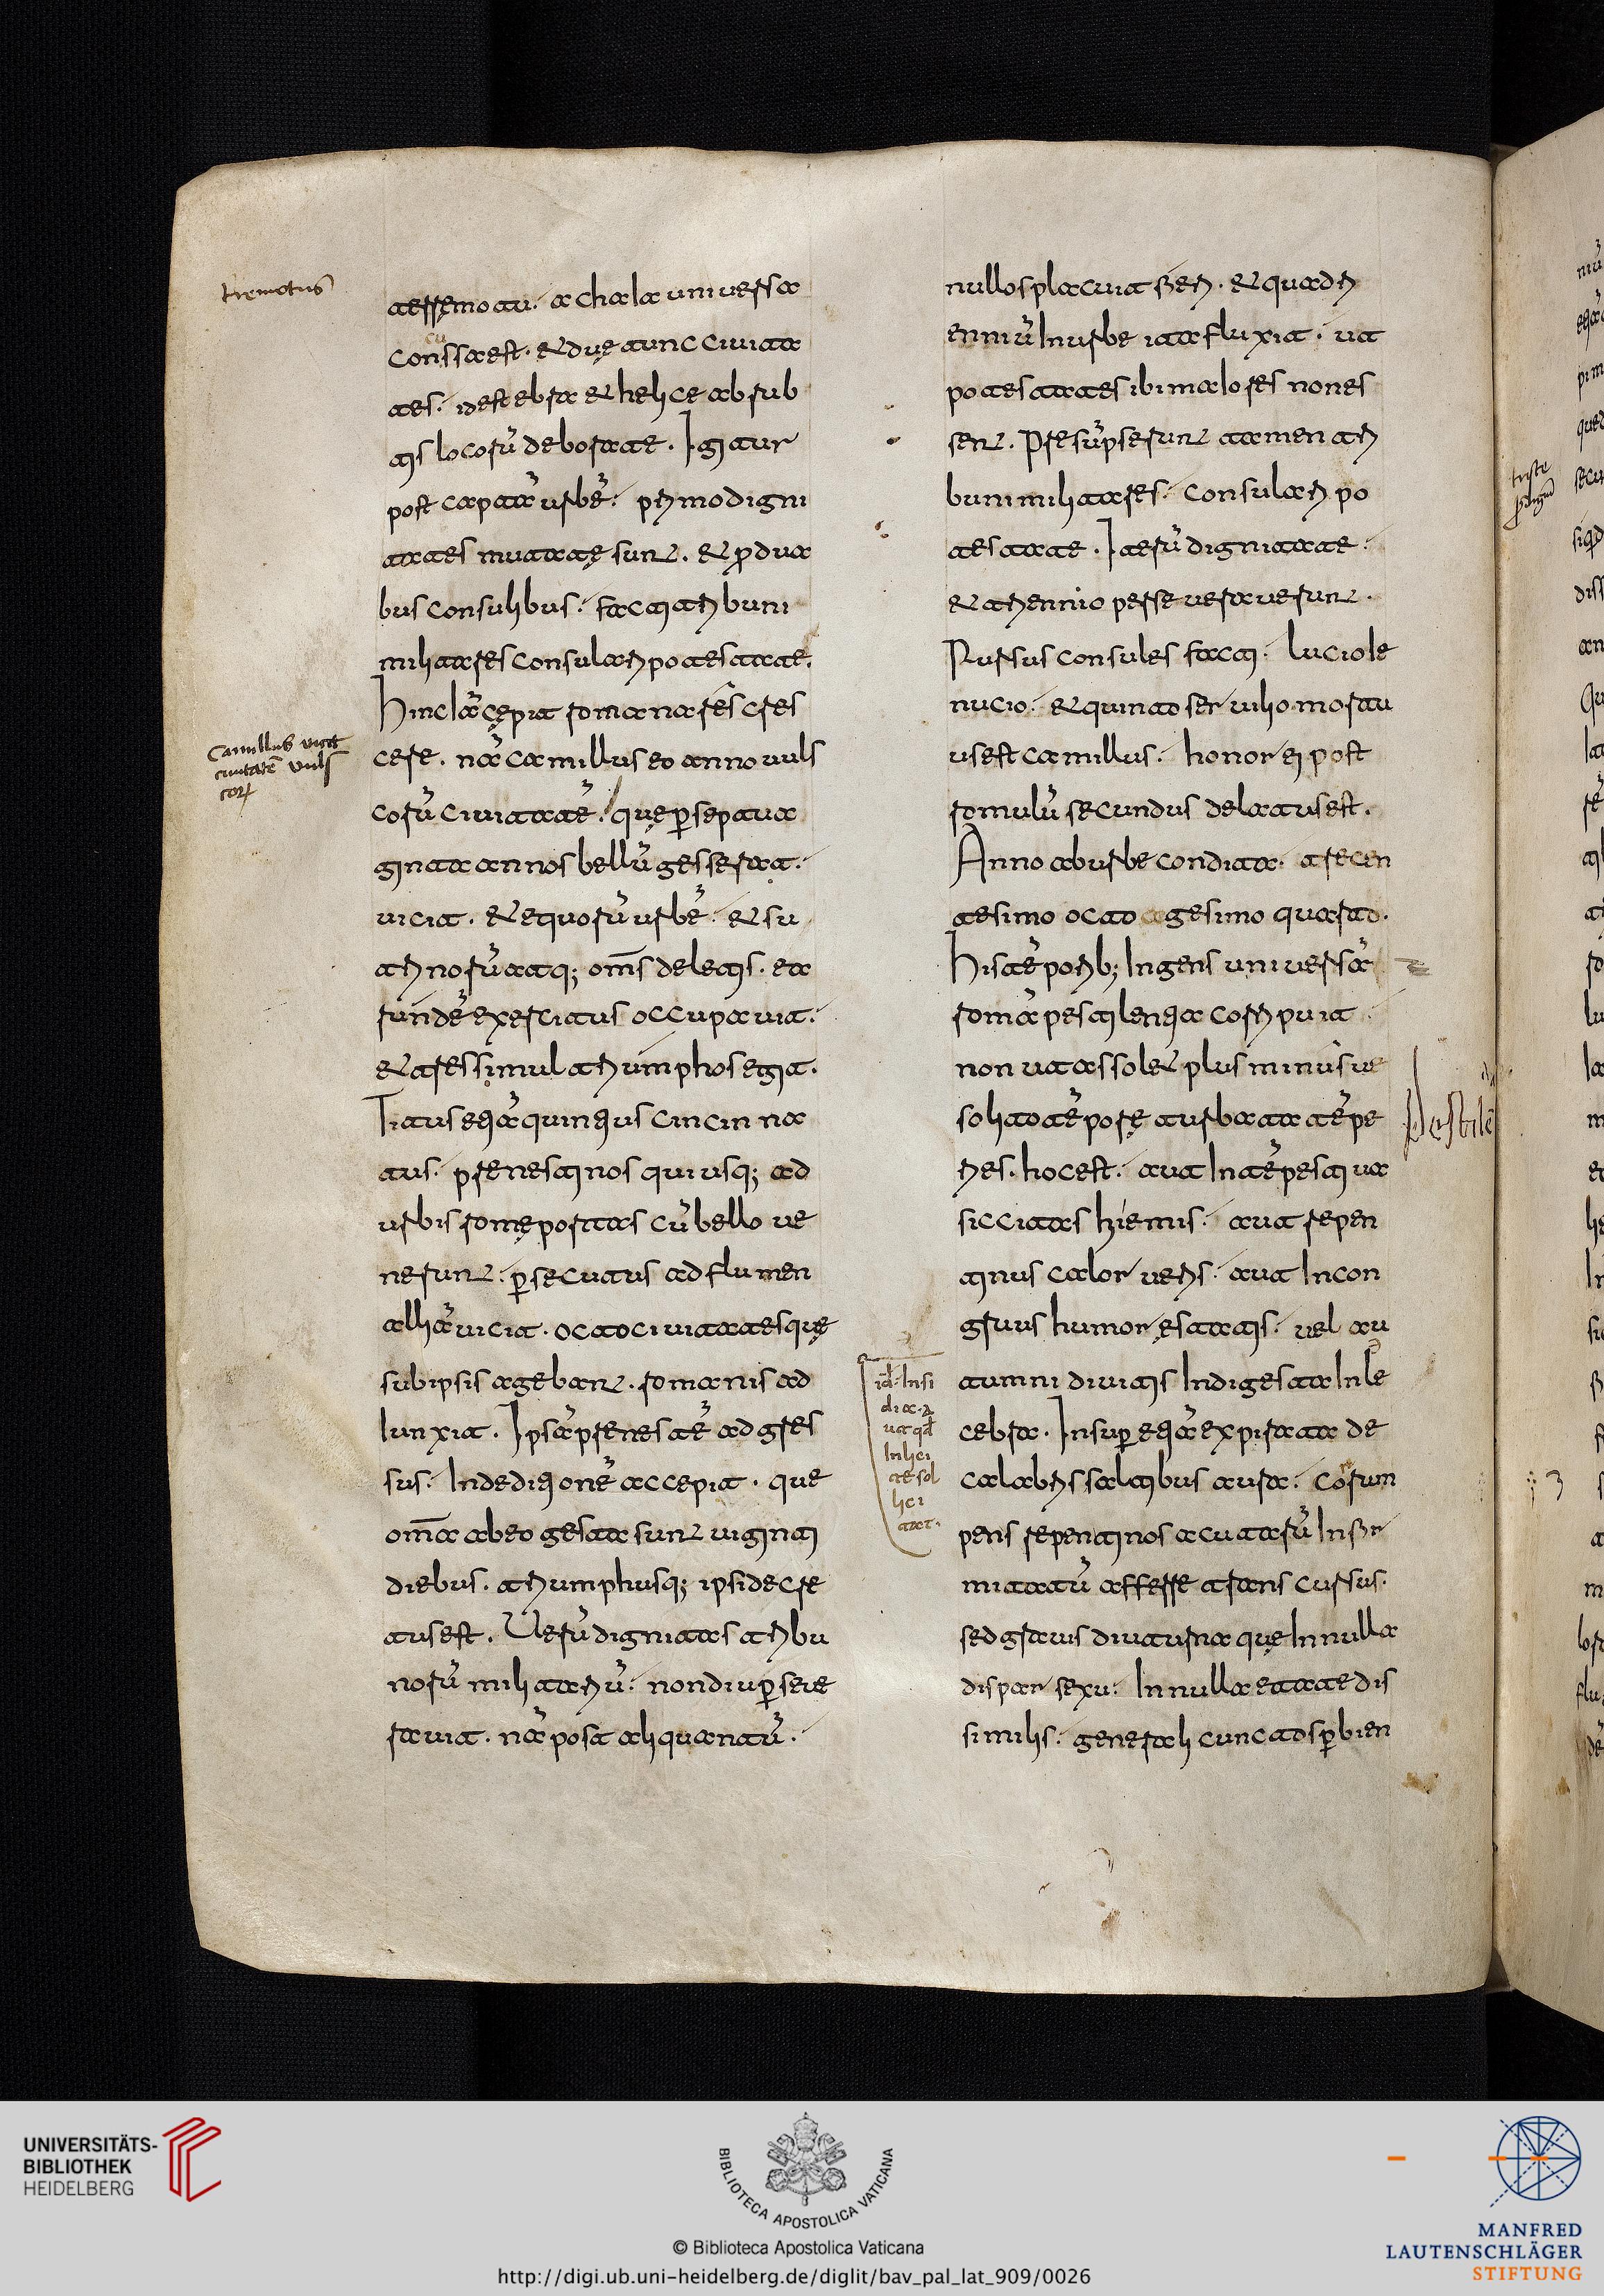 tremotus
terręmotu. achaia universa
concussa est. & duę tunc civita
tes. idest ebora & helice abrub
tis locorū devorate. Igitur
post captā urbē. primo digni
tates mutatę sunt. & ꝓ duo
bus consulibus. facti tribuni
militares consulari potestate.
Hinc iā cępit romana res cres
cere. nā camillus eo anno vuls
Camillus vicit
civitatē vuls
corū
corū civitatē. quę ꝑ septua
ginta annos bellū gesserat.
vicit. & equorū urbē. & su
trinorū atq; om̄s deletis. ea
rundē exercitus occupavit.
& tres simul triumphos egit.
Titus etiā quintius cincinna
tus. prenestinos qui usq; ad
urbis romę portas cū bello ve
nerunt. ꝑsecutus ad flumen
alliā vicit. octo civitates quę
sub ipsis agebant. romanis ad
iunxit. Ipsā prenestē adgres
sus. In deditionē accepit. que
om̄a ab eo gesta sunt viginti
diebus. triumphusq; ipsi decre
tus est. Verū dignitas tribu
norū militariū. non diu ꝑseve
ravit. nā post aliquantū.
nullos placuit fieri. & quadri
enniū In urbe ita fluxit. ut
potestates ibi maiores non es
sent. Presūpserunt tamen tri
buni militares. consulari po
testate. Iterū dignitate.
& triennio perseveraverunt.
Rursus consules facti. lucio ge
nucio. & quinto servilio. mortu
us est camillus. honor ei post
romulū secundus delatus est.
Anno ab urbe condita. trecen
tesimo octogesimo quarto.
His tēporib; Ingens universā
romā pestilentia corripuit
non ut assolet plus minusve
solito tēporę turbata tēpe
Pestilē
ries. hoc est. aut Intēpestiva
siccitas hiemis. aut repen
tinus calor veris. aut Incon
gruus humor ęstatis. vel au
tumni divitis Indigesta Inle
id̄. Insi
diosa
Inlici
te sol
lici
tat.
cebra. Insuꝑ etiā expirata de
calabris saltibus aura. corrum
pens repentinos acutarū Infir
mitatū afferre trans cursus.
sed gravis diuturnaquę In nullo
dispar sexu. In nulla etate dis
similis. generali cunctos ꝑ bien
UNIVERSITÄTS-
BIBLIOTHEK
HEIDELBERG
BIBLIOTECA APOSTOLICA VATICANA
© Biblioteca Apostolica Vaticana
http://digi.ub.uni-heidelberg.de/diglit/bav_pal_lat_909/0026
MANFRED
LAUTENSCHLÄGER
STIFTUNG